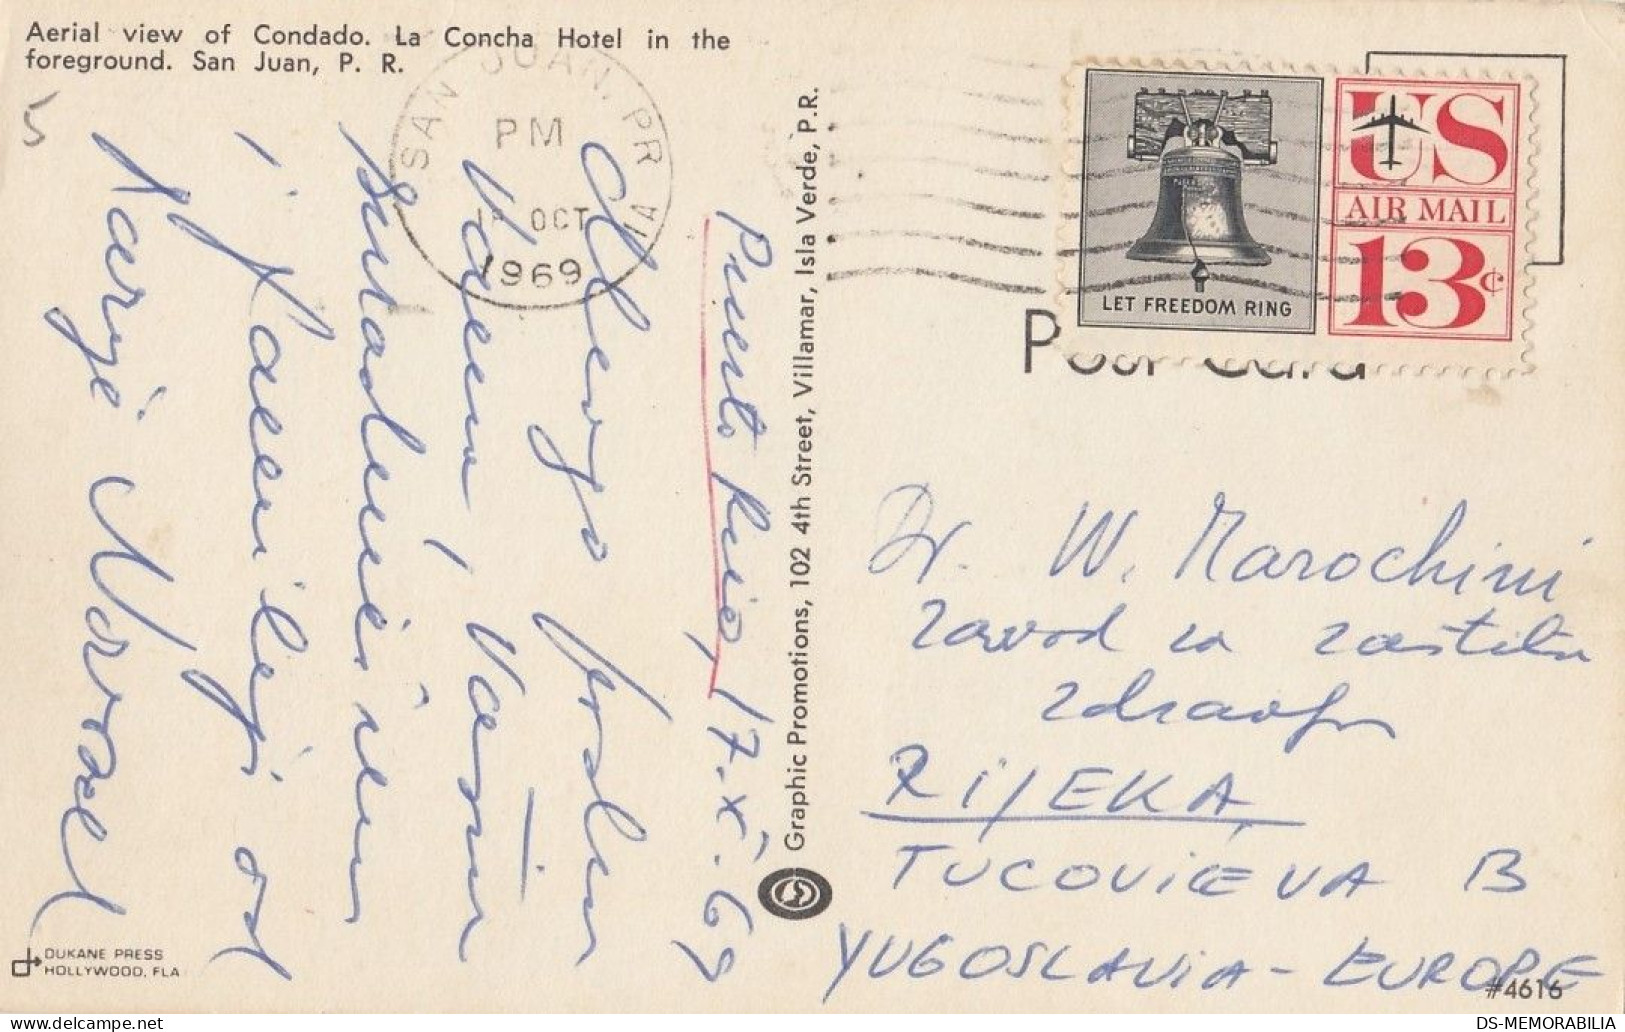 Aerial view of Condado. La Concha Hotel in the
foreground. San Juan, P. R.
SAN JUAN, PR
PM
OCT
1969
US
AIR MAIL
13c
LET FREEDOM RING
Post Card
Puerto Rico, 17.X.69
Vama, Vašim
suradnicima
i familiji od
Dr. W. Marochini
Zavod za zaštitu
zdravlja
RIJEKA,
TUCOVIĆEVA 13
YUGOSLAVIA - EUROPE
Graphic Promotions, 102 4th Street, Villamar, Isla Verde, P.R.
DUKANE PRESS
HOLLYWOOD, FLA
#4616
DS-MEMORABILIA